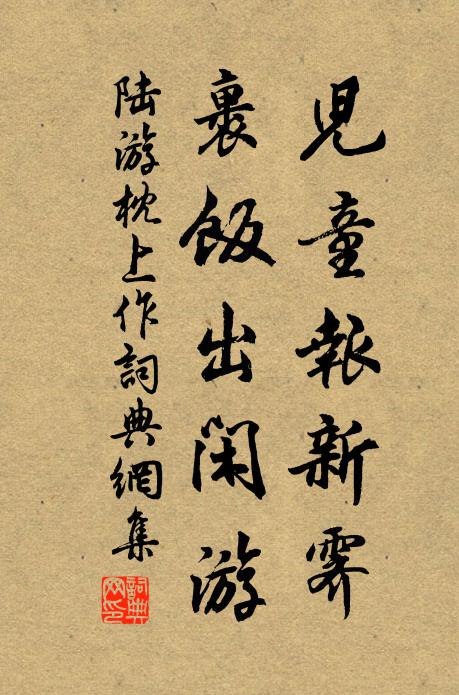 兒童報新霽
裹飯出閑游
陸游枕上作詞典網集
詞典
网印